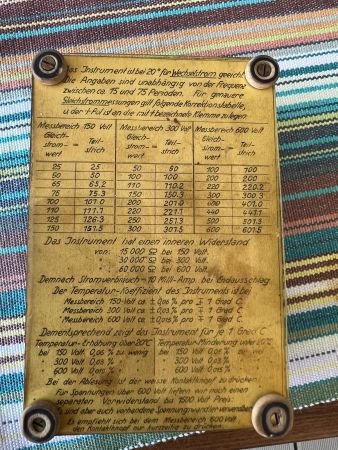 Das Instrument ist bei 20° für Wechselstrom geeicht
Die Angaben sind unabhängig von der Frequenz
zwischen ca. 15 und 75 Perioden. Für genauere
Gleichstrommessungen gilt folgende Korrektionstabelle,
Messbereich 150 Volt Messbereich 300 Volt Messbereich 600 Volt
Gleich- Teil- Gleich- Teil- Gleich- Teil-
strom- = strich strom- = strich strom- = strich
wert wert wert
25 25 50 50 100 100
50 50 100 100 200 200
65 65,2 110 110,2 220 220,2
75 75,3 150 150,3 300
100 101,0 200 401,0
110 111,1 220 221,1 440 441,1
125 126,3 250 251,3 500 501,3
150 151,5 300 301,5 600 601,5
Das Instrument hat einen inneren Widerstand
von: 15 000 Ω bei 150 Volt.
30 000 Ω bei 300 Volt.
60 000 Ω bei 600 Volt.
Demnach Stromverbrauch = 10 Mill-Amp. bei Endausschlag.
Der Temperatur-Koeffizient des Instruments ist bei
Messbereich 150 Volt ca ± % pro ∓ 1 Grad C.
Messbereich 300 Volt ca ± % pro ∓ 1 Grad C.
Messbereich 600 Volt ca ± % pro ∓ 1 Grad C.
Dementsprechend zeigt das Instrument für je 1 Grad C.
Temperatur-Erhöhung über 20°C Temperatur-Minderung unter 20°C
bei 150 Volt % zu wenig bei 150 Volt %
300 Volt % 300 Volt %
600 Volt % 600 Volt %
Bei der Ablesung ist der weisse Kontaktknopf zu drücken.
Für Spannungen über 600 Volt liefern wir noch einen
separaten Vorwiderstand bis 1500 Volt
sind aber auch vorhandene Spannungswandler verwendbar.
Es empfiehlt sich bei dem Messbereich 600 Volt
den Kontaktknopf nur kurzzeitig zu drücken.